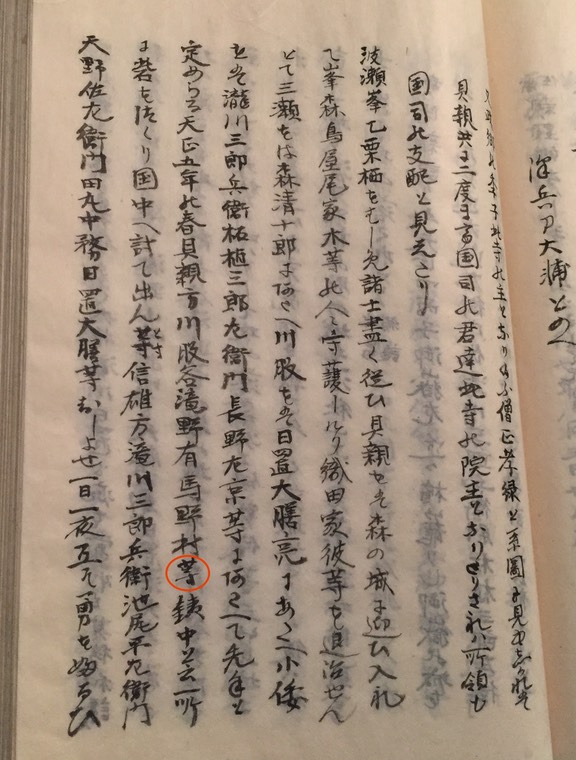 兵ア大浦とのへ
此寺の主となり 僧正孝縁と系図に見ゆ
具親共に二度まて国司の君達此寺の院主となりたりされハ所領も
国司の支配と見えたり
波瀬峯乙栗栖を 諸士盡く従ひ具親をは森の城に迎ひ入れ
て峯森鳥屋尾家木等の人々守護しけり織田家彼等を退治せん
とて三瀬をは森清十郎にあたへ川股をは日置大膳亮にあたへ小倭
をは瀧川三郎兵衛柘植三郎左衛門長野左京等にあたへて先手と
定めらる天正五年の春具親方川股谷滝野有馬野村等 中 一所
に砦をつくり国中へ討て出ん等とす信雄方滝川三郎兵衛池尻平左衛門
天野佐左衛門田丸中務日置大膳等おしよせ一日一夜互に勇を婦るひ